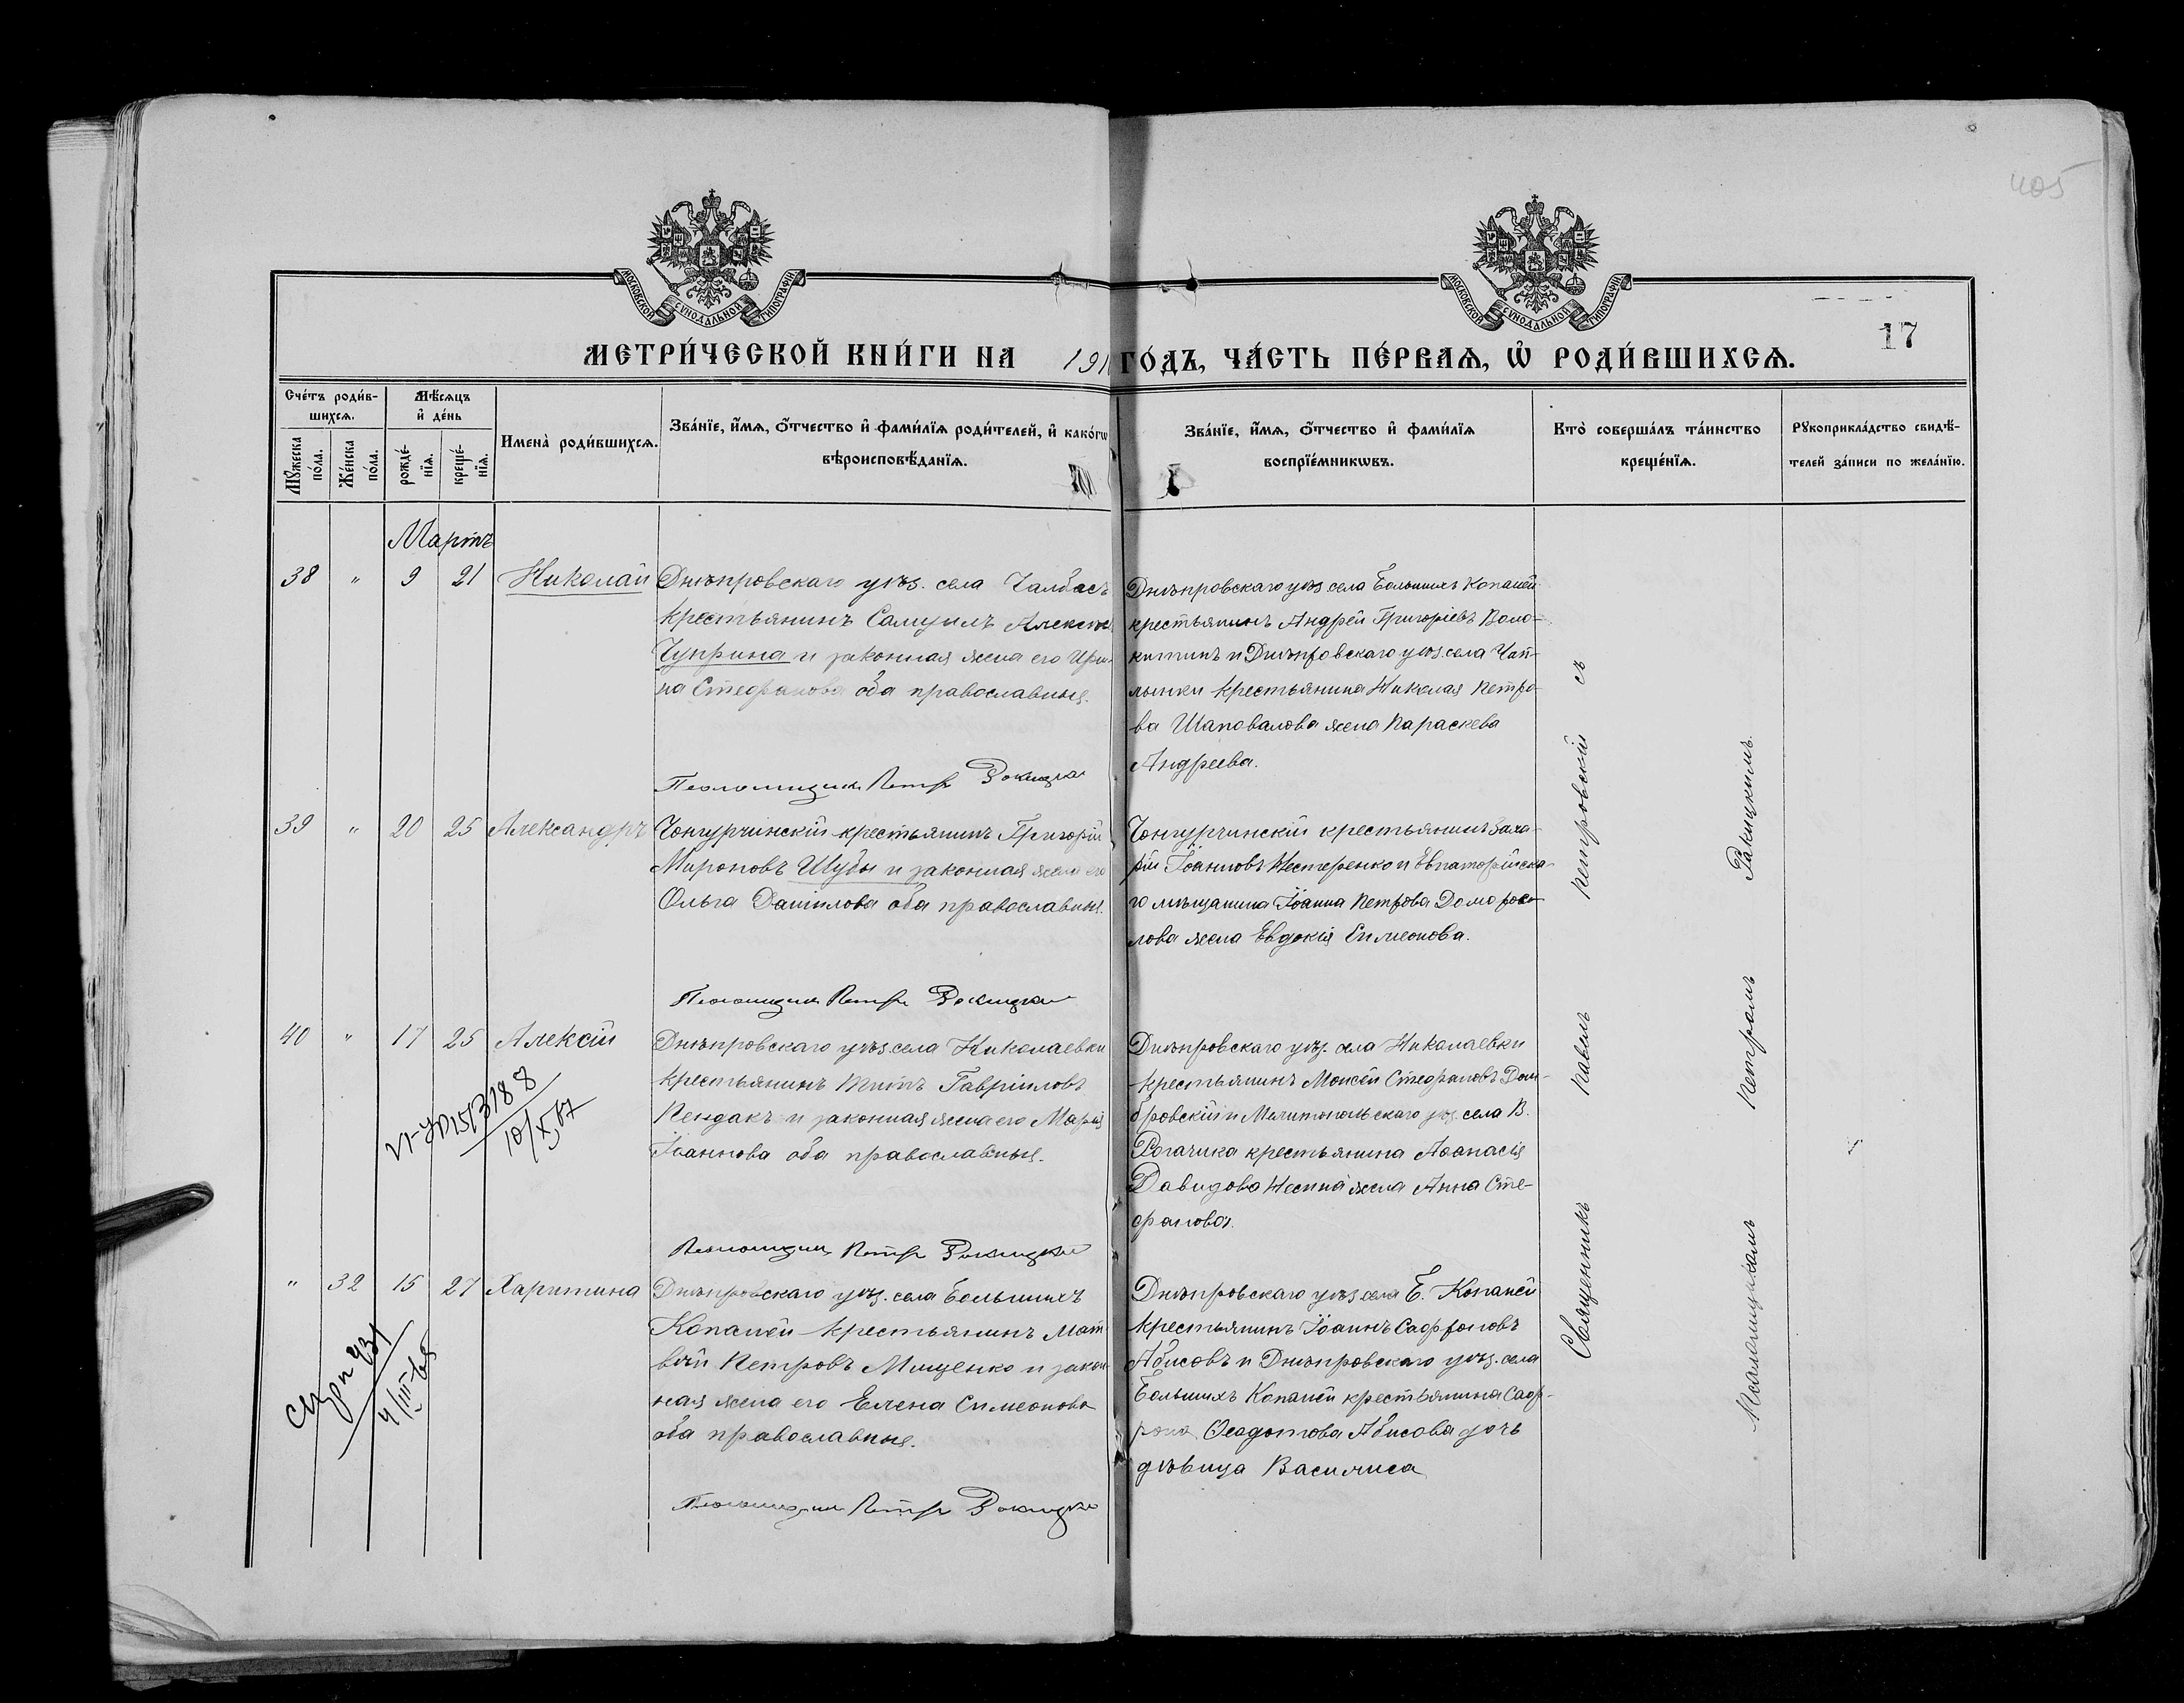 405
МОСКОВСКОЙ СѴНОДАЛЬНОЙ ТИПОГРАФІИ
МОСКОВСКОЙ СѴНОДАЛЬНОЙ ТИПОГРАФІИ
17
МЕТРИ́ЧЕСКОЙ КНИ́ГИ НА 191 ГО́ДЪ, ЧА́СТЬ ПЕ́РВАѦ, Ѡ҆ РОДИ́ВШИХСѦ.
Сче́тъ роди́в-
шихсѧ.
Мꙋжеска
по́ла.
Же́нска
по́ла.
Мѣ́сѧцъ
и҆ де́нь
рожде́-
нїѧ.
креще́-
нїѧ.
Имена̀ роди́вшихсѧ.
Зва́нїе, и҆́мѧ, ѻ҆́тчество и҆ фами́лїѧ роди́телей, и҆ како́гѡ
вѣроисповѣ́данїѧ.
Зва́нїе, и҆́мѧ, ѻ҆́тчество и҆ фами́лїѧ
воспрїе́мникѡвъ.
Кто̀ соверша́лъ та́инство
креще́нїѧ.
Рꙋкоприкла́дство свидѣ́-
телей за́писи по жела́нїю.
Мартъ
38 " 9 21 Николай
Днѣпровскаго уѣз. села Чалбасъ
крестьянинъ Самуилъ
Чуприна и законная жена его Ири-
на Стефанова оба православные.
Псаломщикъ Петръ Рокицкій
Днѣпровскаго уѣз. села Большихъ Копаней
крестьянинъ Андрей Григоріевъ Воло-
китинъ и Днѣпровскаго уѣз. села Чап-
лынки крестьянина Николая Петро-
ва Шаповалова жена Параскева
Андреева.
39 " 20 25 Александръ
Чонгурчинскій крестьянинъ Григорій
Мироновъ Шубы и законная жена его
Ольга Даніилова оба православные.
Псаломщикъ Петръ Рокицкій
Чонгурчинскій крестьянинъ Заха-
рій Іоанновъ Нестеренко и Евпаторійска-
го мѣщанина Іоанна Петрова
лова жена Евдокія Симеонова.
40 " 17 25 Алексій
Днѣпровскаго уѣз. села Николаевки
крестьянинъ Титъ Гавріиловъ
Пендакъ и законная жена его Марія
Іоаннова оба православные.
Псаломщикъ Петръ Рокицкій
Днѣпровскаго уѣз. села Николаевки
крестьянинъ Моисей Стефановъ Дом-
бровскій и Мелитопольскаго уѣз. села В.
Рогачика крестьянина Аѳанасія
Давидова жена Анна Сте-
фанова.
10/X 67
" 32 15 27 Харитина
Днѣпровскаго уѣз. села Большихъ
Копаней крестьянинъ Мат-
вѣй Петровъ Мищенко и закон-
ная жена его Елена Симеонова
оба православные.
Псаломщикъ Петръ Рокицкій
Днѣпровскаго уѣз. села Б. Копаней
крестьянинъ Іоаннъ Сафроновъ
Абисовъ и Днѣпровскаго уѣз. села
Большихъ Копаней крестьянина Саф-
рона Ѳеодотова Абисова дочь
дѣвица Василиса
4/III-65
Священникъ Павелъ Петровскій съ
Псаломщикомъ Петромъ Ракицкимъ.